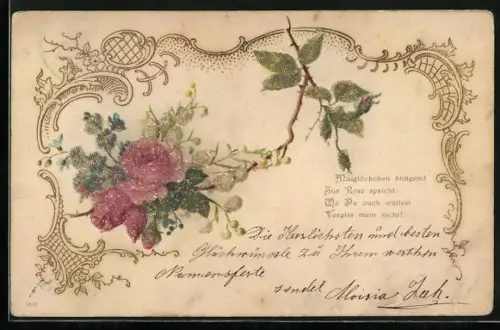 Maiglöckchen klingend
Zur Rose spricht:
Wo Du auch weilest
Vergiss mein nicht!
Die Herzlichsten und besten
Glückwünsche zu Ihrem werthen
Namensfeste
sendet Aloisia